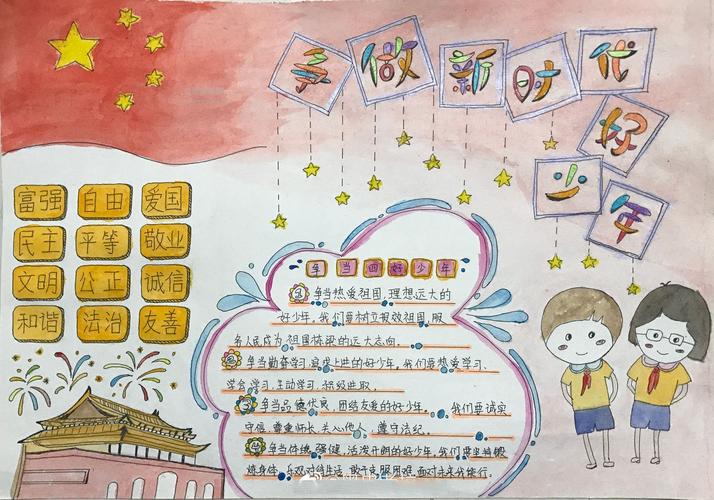 争做新时代好少年
富强 自由 爱国
民主 平等 敬业
文明 公正 诚信
和谐 法治 友善
争当四好少年
1 争当热爱祖国,理想远大的
好少年,我们要树立报效祖国,服
务人民成为祖国栋梁的远大志向。
争当勤奋学习,追求上进的好少年,我们要热爱学习、
学会学习、主动学习,积极进取。
3 争当品德优良,团结友爱的好少年。我们要诚实
守信,尊重师长,关心他人,遵守法纪。
争当体魄强健,活泼开朗的好少年,我们要坚持锻
炼身体,乐观对待生活,敢于克服困难,面对未来